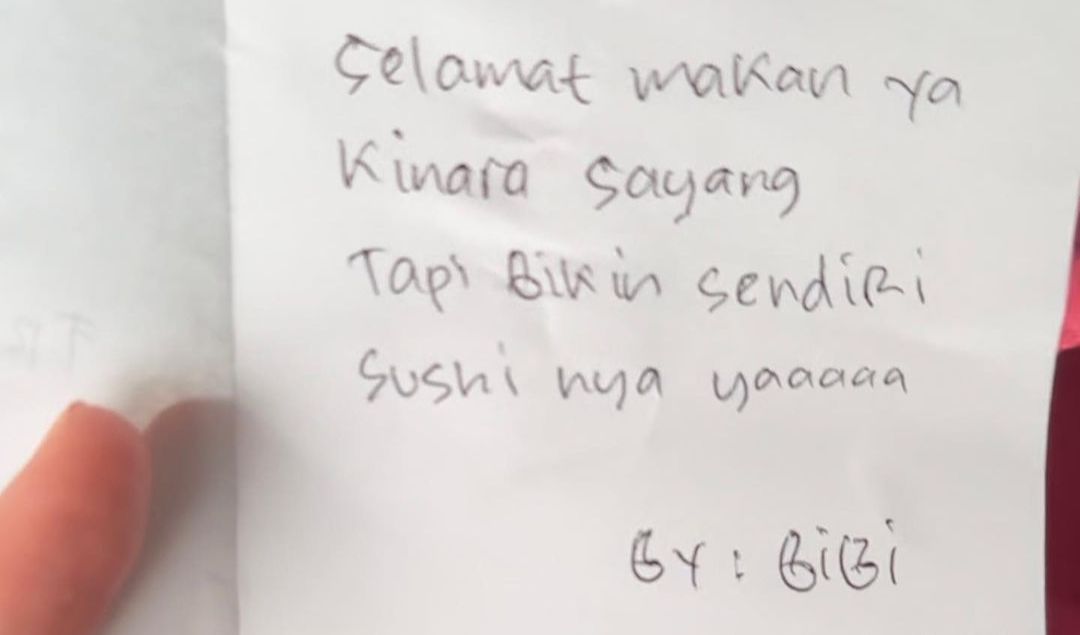 Selamat makan ya
Kinara sayang
Tapi Bikin sendiRi
Sushi nya yaaaaa
BY : BiBi